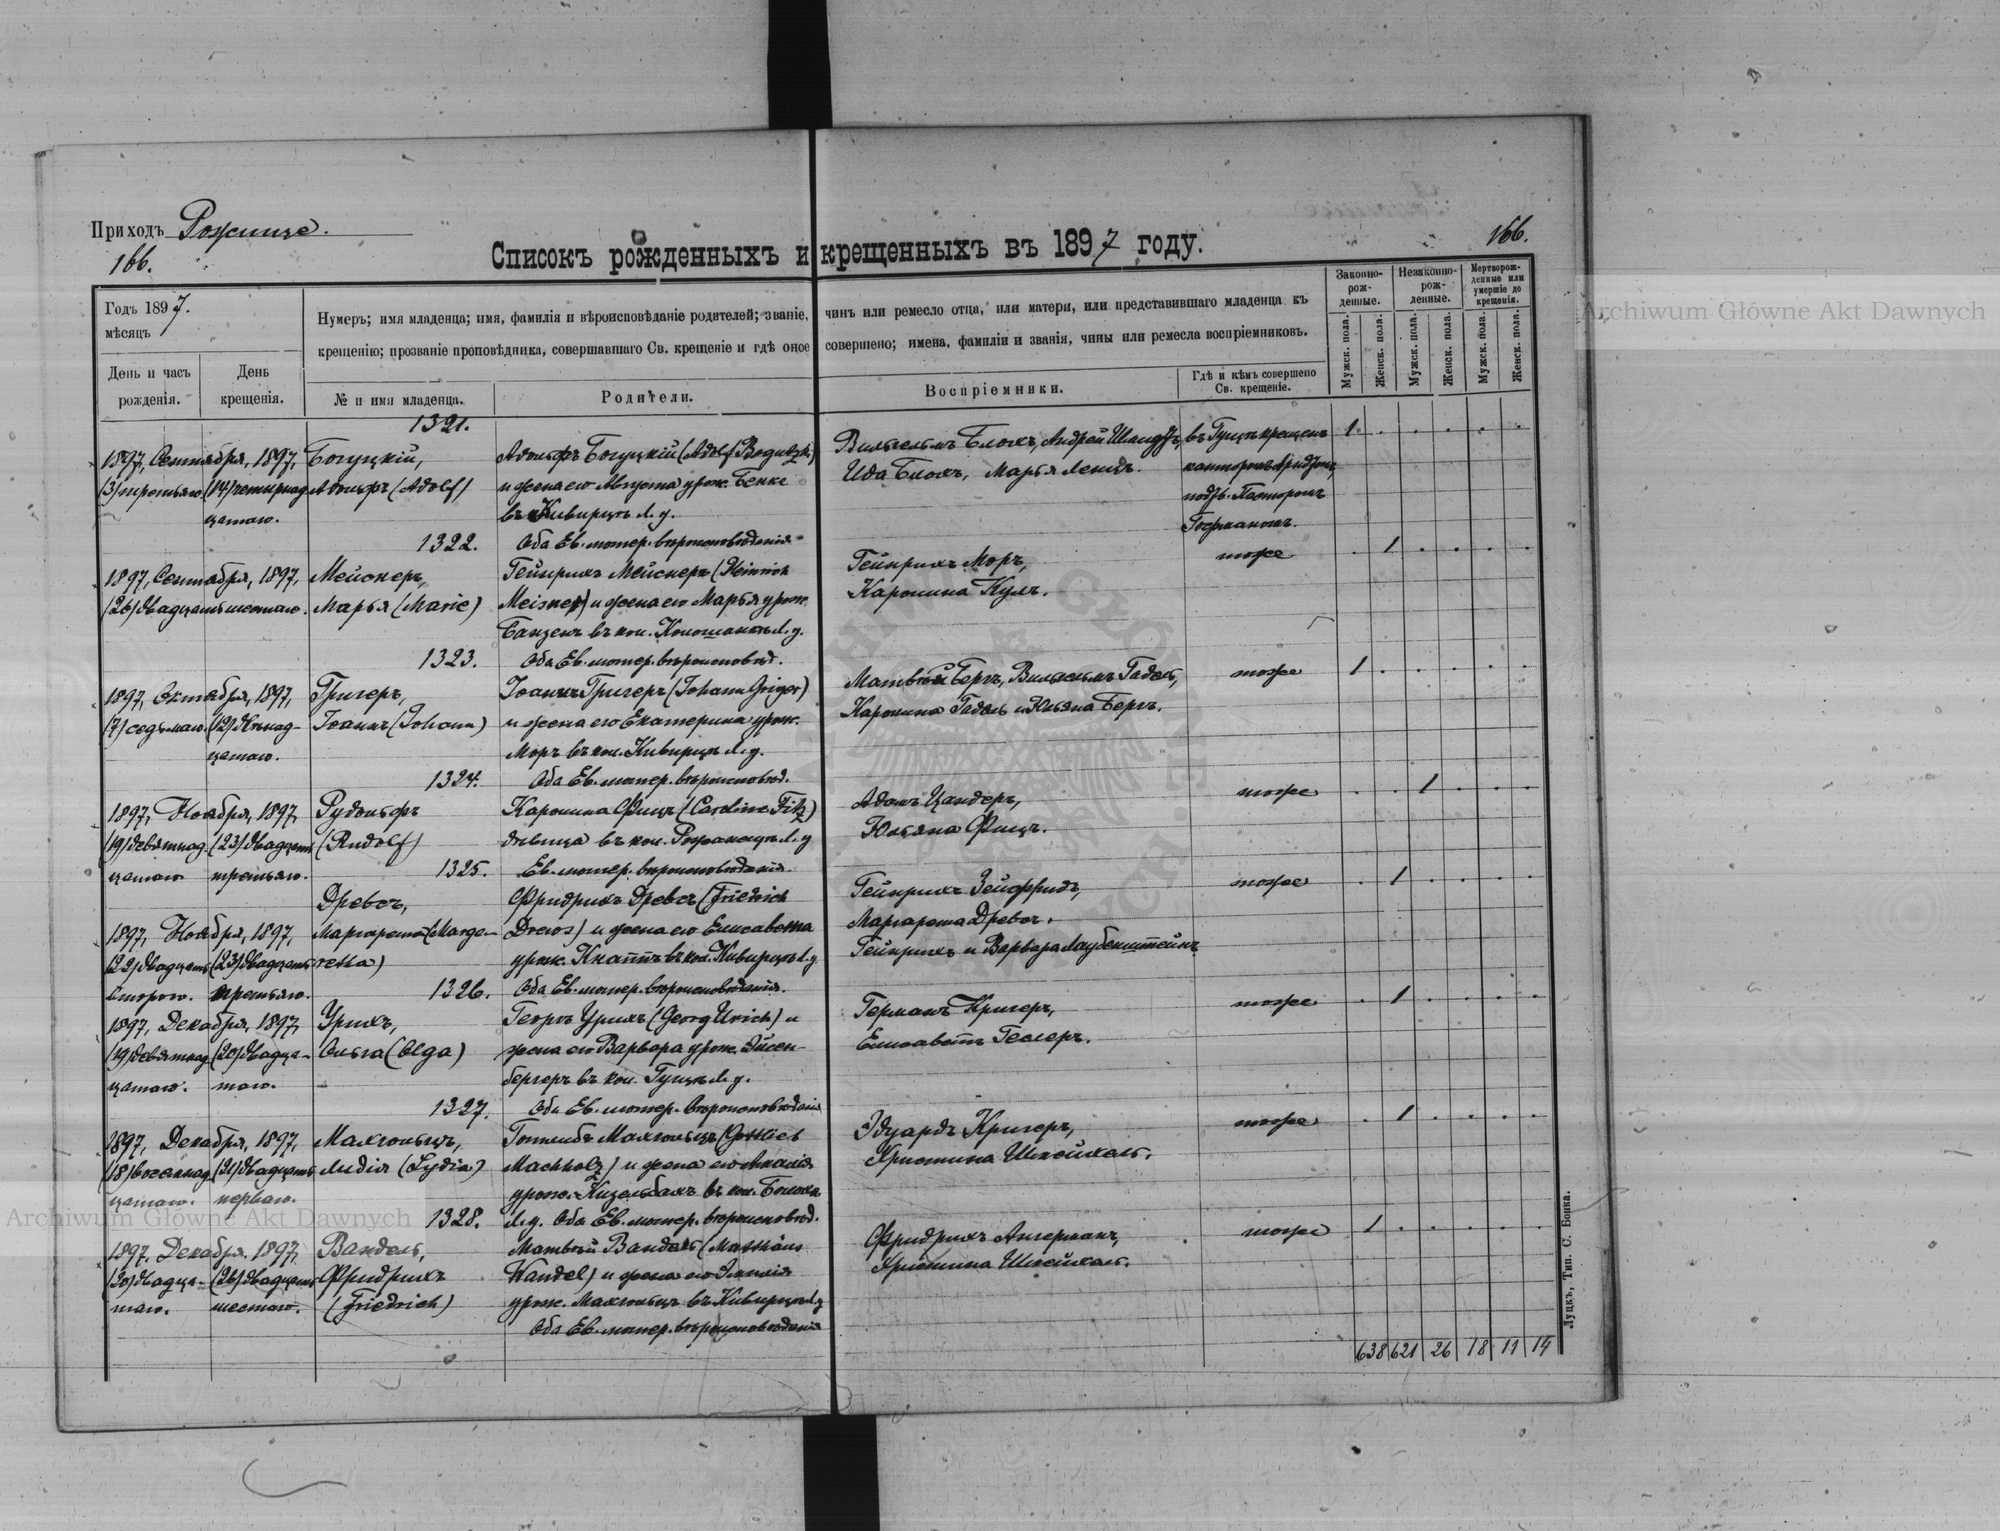 Приходъ Рожище.
166.
166.
Списокъ рожденныхъ и крещенныхъ въ 1897 году.
Годъ 1897.
мѣсяцъ
День и часъ рожденія.
День крещенія.
Нумеръ; имя младенца; имя, фамилія и вѣроисповѣданіе родителей; званіе, чинъ или ремесло отца, или матери, или представившаго младенца къ
крещенію; прозваніе проповѣдника, совершавшаго Св. крещеніе и гдѣ оное совершено; имена, фамиліи и званія, чины или ремесла воспріемниковъ.
№ и имя младенца.
Родители.
Воспріемники.
Гдѣ и кѣмъ совершено Св. крещеніе.
Законно-рож-денные.
Незаконно-рож-денные.
Мертворож-денные или умершіе до крещенія.
Мужск. пола.
Женск. пола.
Мужск. пола.
Женск. пола.
Мужск. пола.
Женск. пола.
1321.
1897, Сентября, 1897,
(3) третьяго (14) четырнад-
цатаго.
Богуцкій,
Адольфъ (Adolf)
Адольфъ Богуцкій (Adolf Bogutzki)
и жена его Августа урож. Бенке
въ Киверцѣ Л. у.
Оба Ев. лютер. вѣроисповѣданія
Вильгельмъ Блокъ, Андрей
Ида Блокъ, Марья
въ Гуцкѣ крещенъ
канторомъ
подтв. Пасторомъ
1.
1322.
1897, Сентября, 1897,
(26) двадцать шестаго.
Мейснеръ,
Марья (Marie)
Гейнрихъ Мейснеръ (Heinrich
Meisner) и жена его Марья урож.
въ кол. Л. у.
Оба Ев. лютер. вѣроисповѣд.
Гейнрихъ Моръ,
Каролина Кулъ.
тоже
1
1323.
1897, Октября, 1897,
(7) седьмаго. (12) двѣнад-
цатаго.
Григеръ,
Іоаннъ (Johann)
Іоаннъ Григеръ (Johann Griger)
и жена его Екатерина урож.
Моръ въ кол. Киверцѣ Л. у.
Оба Ев. лютер. вѣроисповѣд.
Матвѣй Бергъ, Вильгельмъ Гадель,
Каролина Гадель и Юльяна Бергъ.
тоже
1
1324.
1897, Ноября, 1897,
(19) девятнад- (23) двадцать
цатаго третьяго.
Рудольфъ
(Rudolf)
Каролина Фицъ (Caroline Fitz)
дѣвица въ кол. Л. у
Ев. лютер. вѣроисповѣданія.
Адамъ Цандеръ,
Юльяна Фицъ.
тоже
1
1325.
1897, Ноября, 1897,
(22) двадцать (23) двадцать
втораго. третьяго.
Древсъ,
Маргарета (Marga-
retha)
Фридрихъ Древсъ (Friedrich
Drews) и жена его Елисавета
урож. Кнаппъ въ кол. Киверцѣ Л. у
Оба Ев. лютер. вѣроисповѣданія.
Гейнрихъ Зейффридъ,
Маргарета Древсъ.
Гейнрихъ и Варвара Лаубенштейнъ
тоже
1
1326.
1897, Декабря, 1897,
(19) девятнад (20) двадца-
цатаго. таго.
Урихъ,
Ольга (Olga)
Георгъ Урихъ (Georg Urich) и
жена его Варвара урож. Эйсен-
бергеръ въ кол. Гуцкѣ Л. у.
Оба Ев. лютер. вѣроисповѣданія
Германъ Кригеръ,
Елисаветъ Геслеръ.
тоже
1
1327.
1897, Декабря, 1897,
(18) восемнад (21) двадцать
цатаго. перваго.
Махгольцъ,
Лидія (Lydia)
Готлибъ Махгольцъ (Gottlieb
Machholz) и жена его Амалія
урож. Кизельбахъ въ кол.
Л. у. Оба Ев. лютер. вѣроисповѣд.
Эдуардъ Кригеръ,
Христина
тоже
1
1328.
1897, Декабря, 1897,
(20) двадца- (26) двадцать
таго. шестаго.
Вандель,
Фридрихъ
(Friedrich)
Матвѣй Вандель (Matthäus
Wandel) и жена его Эмилія
урож. Махгольцъ въ Киверцѣ Л. у
Оба Ев. лютер. вѣроисповѣданія
Фридрихъ Ангерманъ,
Христина
тоже
1
638 621 26 18 11 14
Луцкъ, Тип. С. Бонка.
Archiwum Główne Akt Dawnych
Archiwum Główne Akt Dawnych